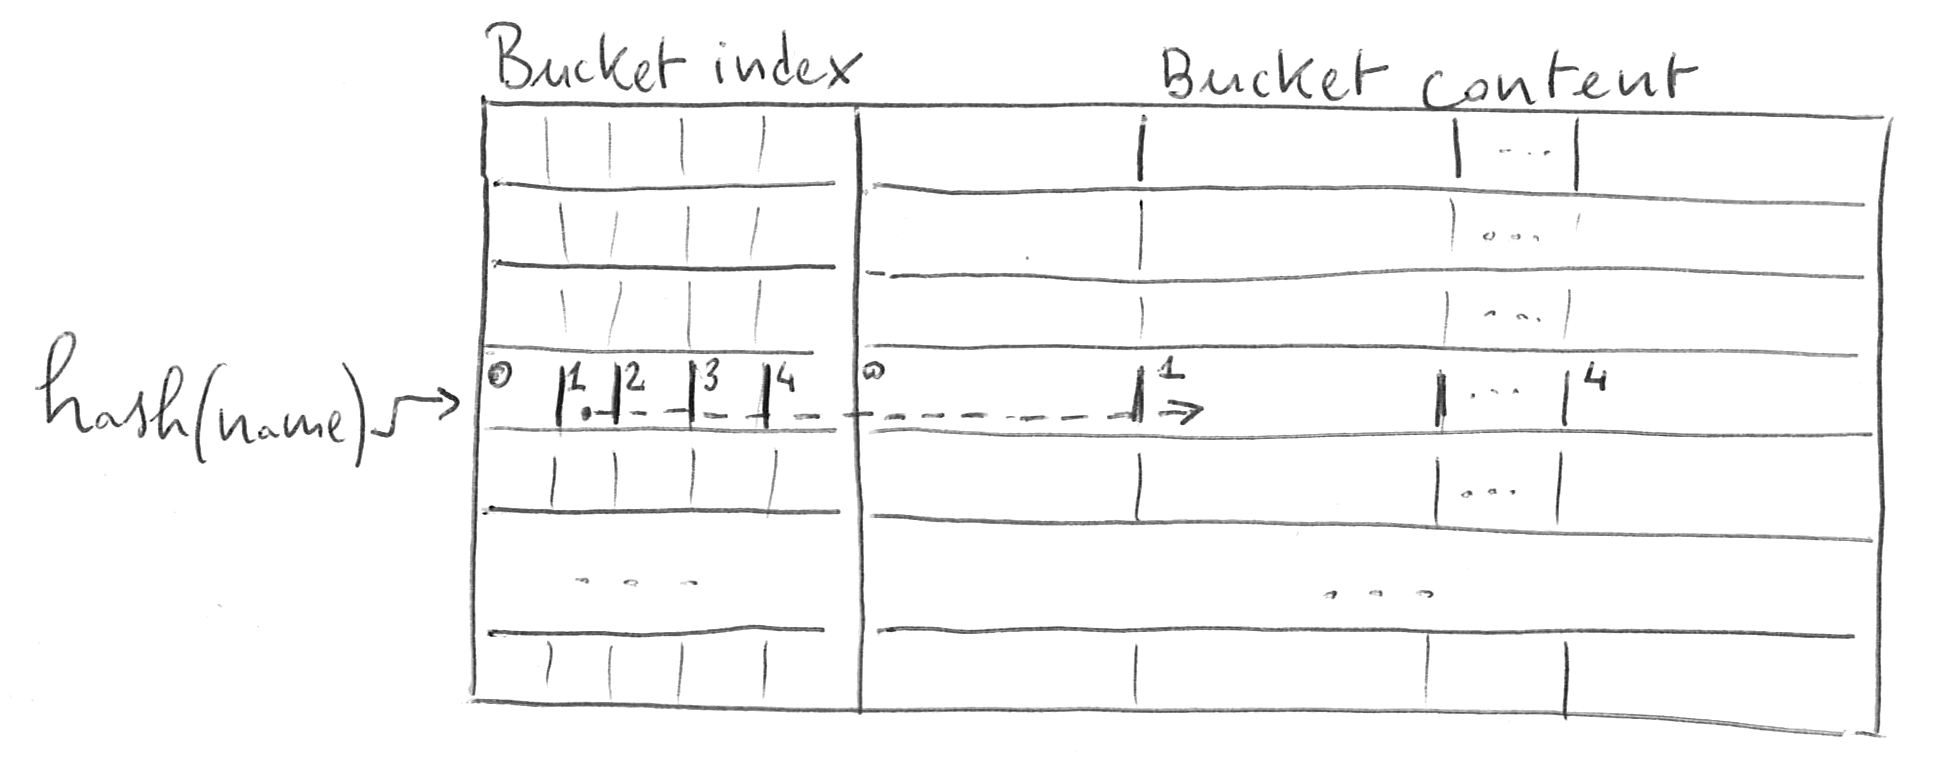 Bucket index Bucket content
...
...
...
hash(name) 0 1 2 3 4 0 1 ... 4
...
... ...